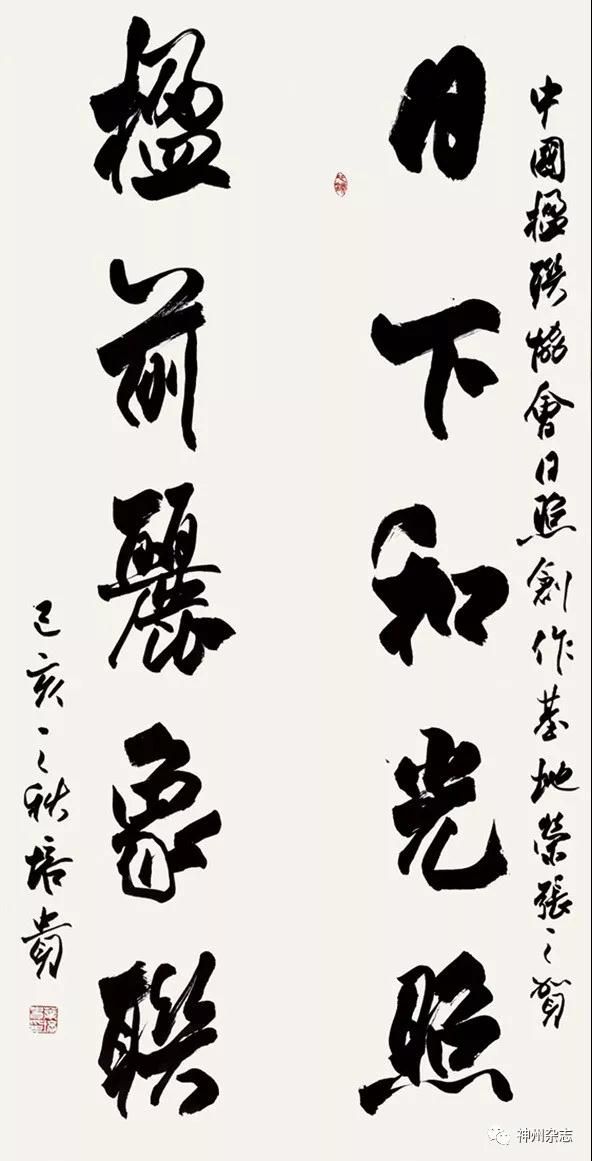 中國楹聯協會日照創作基地榮張之賀
日下和光照
楹前麗象聯
己亥之秋培貴
神州杂志